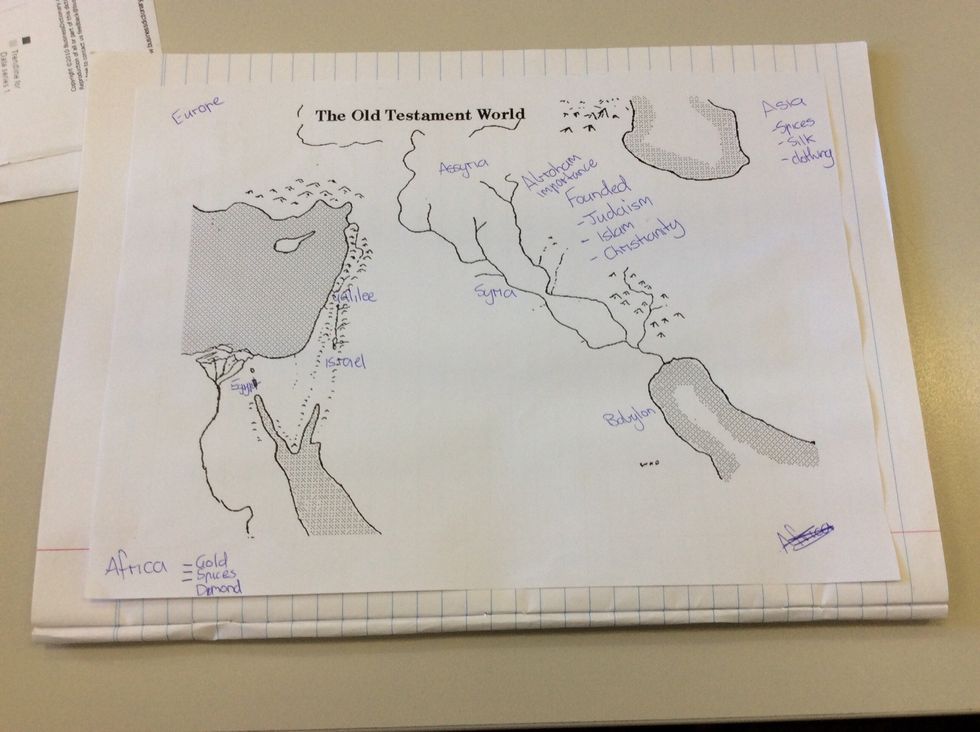 Trendline for
Data series 1
Europe
The Old Testament World
Asia
- Spices
- Silk
- clothing
Assyria
Abraham
importance
Founded
- Judaism
- Islam
- Christianity
Galilee
Syria
Israel
Egypt
Babylon
Africa
Africa
- Gold
- Spices
Dimond